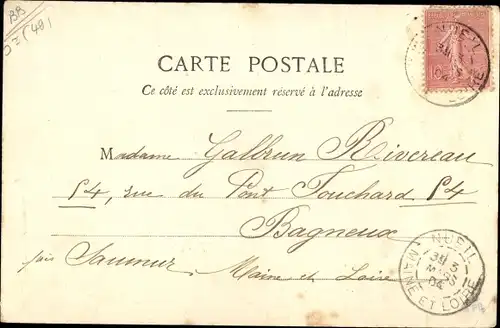 BB
CARTE POSTALE
Ce côté est exclusivement réservé à l'adresse
Madame Galbrun Rivereau
54, rue du Pont Fouchard 54
Bagneux
près Saumur Maine et Loire
NUEIL
MARS
04
MAINE ET LOIRE
10